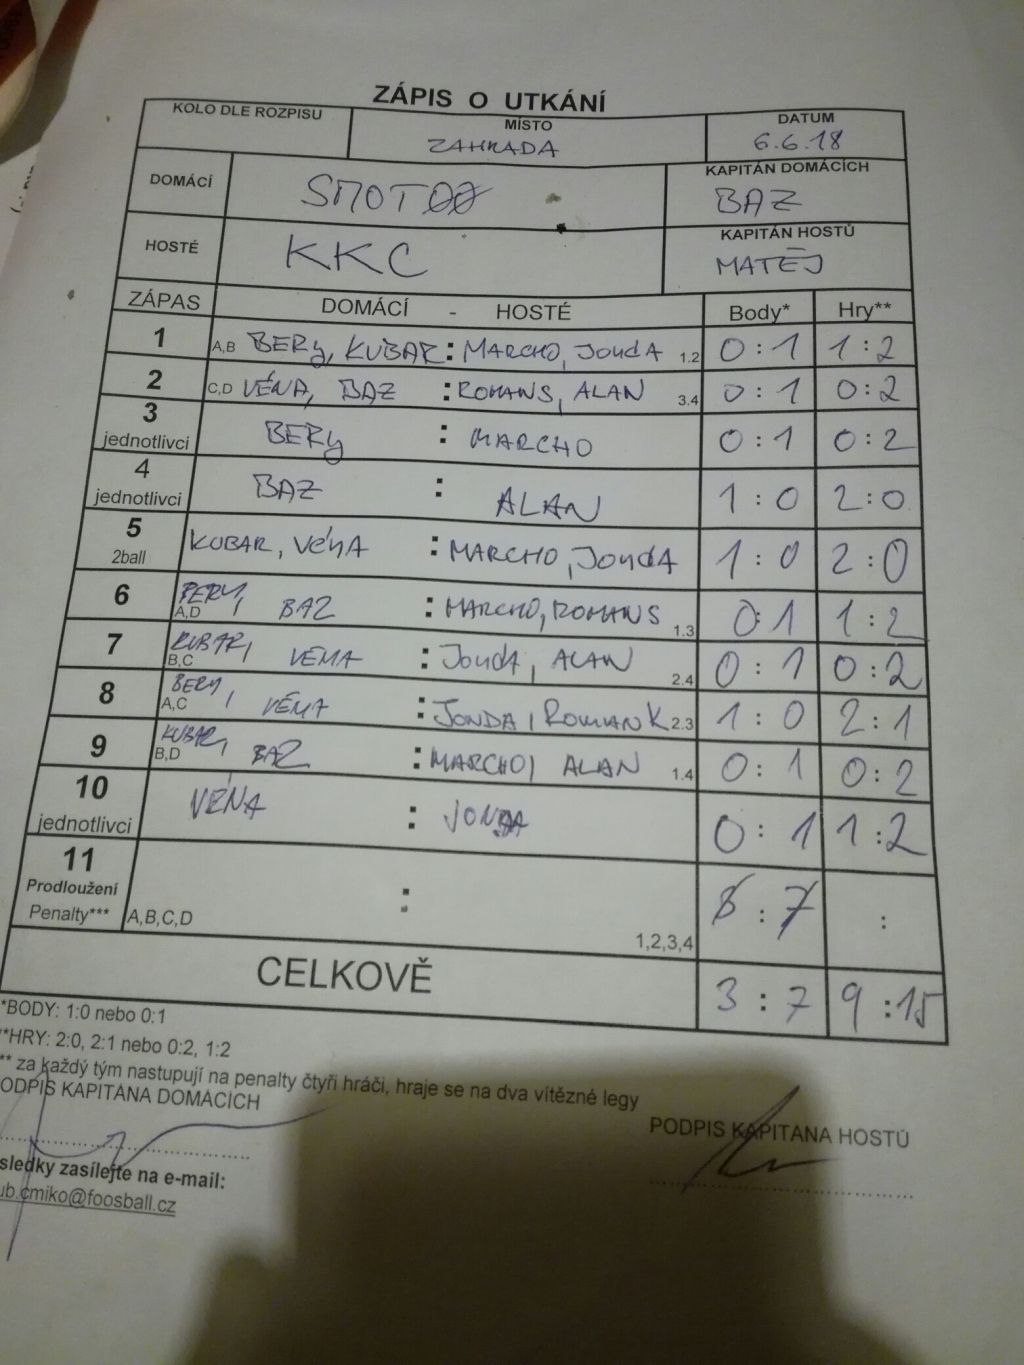 ZÁPIS O UTKÁNÍ
KOLO DLE ROZPISU
MÍSTO
ZAHRADA
DATUM
6.6.18
DOMÁCÍ
KAPITÁN DOMÁCÍCH
BAZ
HOSTÉ
KKC
KAPITÁN HOSTŮ
MATĚJ
ZÁPAS DOMÁCÍ - HOSTÉ Body* Hry**
1 A,B BERY, KUBAR : MARCHO, JONDA 1.2 0:1 1:2
2 C,D VÉNA, BAZ : ROMANS, ALAN 3.4 0:1 0:2
3 jednotlivci BERY : MARCHO 0:1 0:2
4 jednotlivci BAZ : ALAN 1:0 2:0
5 2ball KUBAR, VéNA : MARCHO, JONDA 1:0 2:0
6 A,D BERY, BAZ : MARCHO, ROMANS 1.3 0:1 1:2
7 B,C KUBAR, VÉNA : JONDA, ALAN 2.4 0:1 0:2
8 A,C BERY, VÉNA : JONDA, ROMAN K 2.3 1:0 2:1
9 B,D KUBAR, BAZ : MARCHO, ALAN 1.4 0:1 0:2
10 jednotlivci VÉNA : JONDA 0:1 1:2
11 Prodloužení
Penalty*** A,B,C,D : 1,2,3,4 :
CELKOVĚ 3:7 9:15
*BODY: 1:0 nebo 0:1
**HRY: 2:0, 2:1 nebo 0:2, 1:2
** za každý tým nastupují na penalty čtyři hráči, hraje se na dva vítězné legy
ODPIS KAPITÁNA DOMÁCÍCH
PODPIS KAPITÁNA HOSTŮ
sledky zasílejte na e-mail:
ub.cmiko@foosball.cz